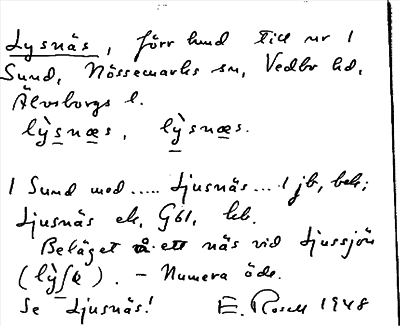 Lysnäs, förr hund till nr 1
Sund, Nössemarks sn, Vedbo hd,
Älvsborgs l.
lỳsnæs, lỳsnæs.
1 Sund med ..... Ljusnäs ... 1 jb, bek;
Ljusnäs ek, Gbl, kb.
Beläget å ett näs vid Ljussjön
(lỳʃɴ̥). – Numera öde.
Se Ljusnäs! E. Rosell 1948